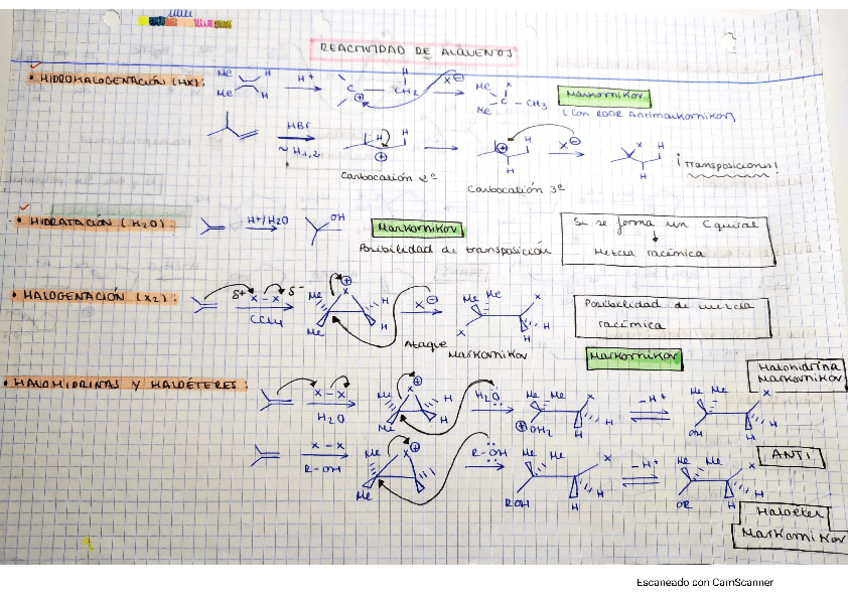 REACTIVIDAD DE ALQUENOS
• HIDROHALOGENACIÓN (HX):
Me Me H H
H+
C ⊕ CH2 H
X⊖
Me Me C X CH3
Markornikov
(Con ROOR Antimarkornikov)
HBr
~H1,2
H H ⊕
Carbocatión 2º
⊕ H H
Carbocatión 3º
X⊖
X H H
¡Transposiciones!
• HIDRATACIÓN (H2O):
H+/H2O
OH
Markornikov
Posibilidad de transposición
Si se forma un C quiral
↓
Mezcla racémica
• HALOGENACIÓN (X2):
δ+ X - X δ-
CCl4
Me Me X ⊕ H H
X⊖
Ataque
Markornikov
Me Me X X H H
Posibilidad de mezcla
racémica
Markornikov
• HALOHIDRINAS Y HALOÉTERES:
X - X
H2O
Me Me X ⊕ H H
H2O
Me Me X ⊕OH2 H H
-H+
Me Me X OH H H
Halohidrina
Markornikov
X - X
R-OH
Me Me X ⊕
R-OH
Me Me X ROH H H
-H+
Me Me X OR H H
ANTI
Haloéter
Markornikov
Escaneado con CamScanner